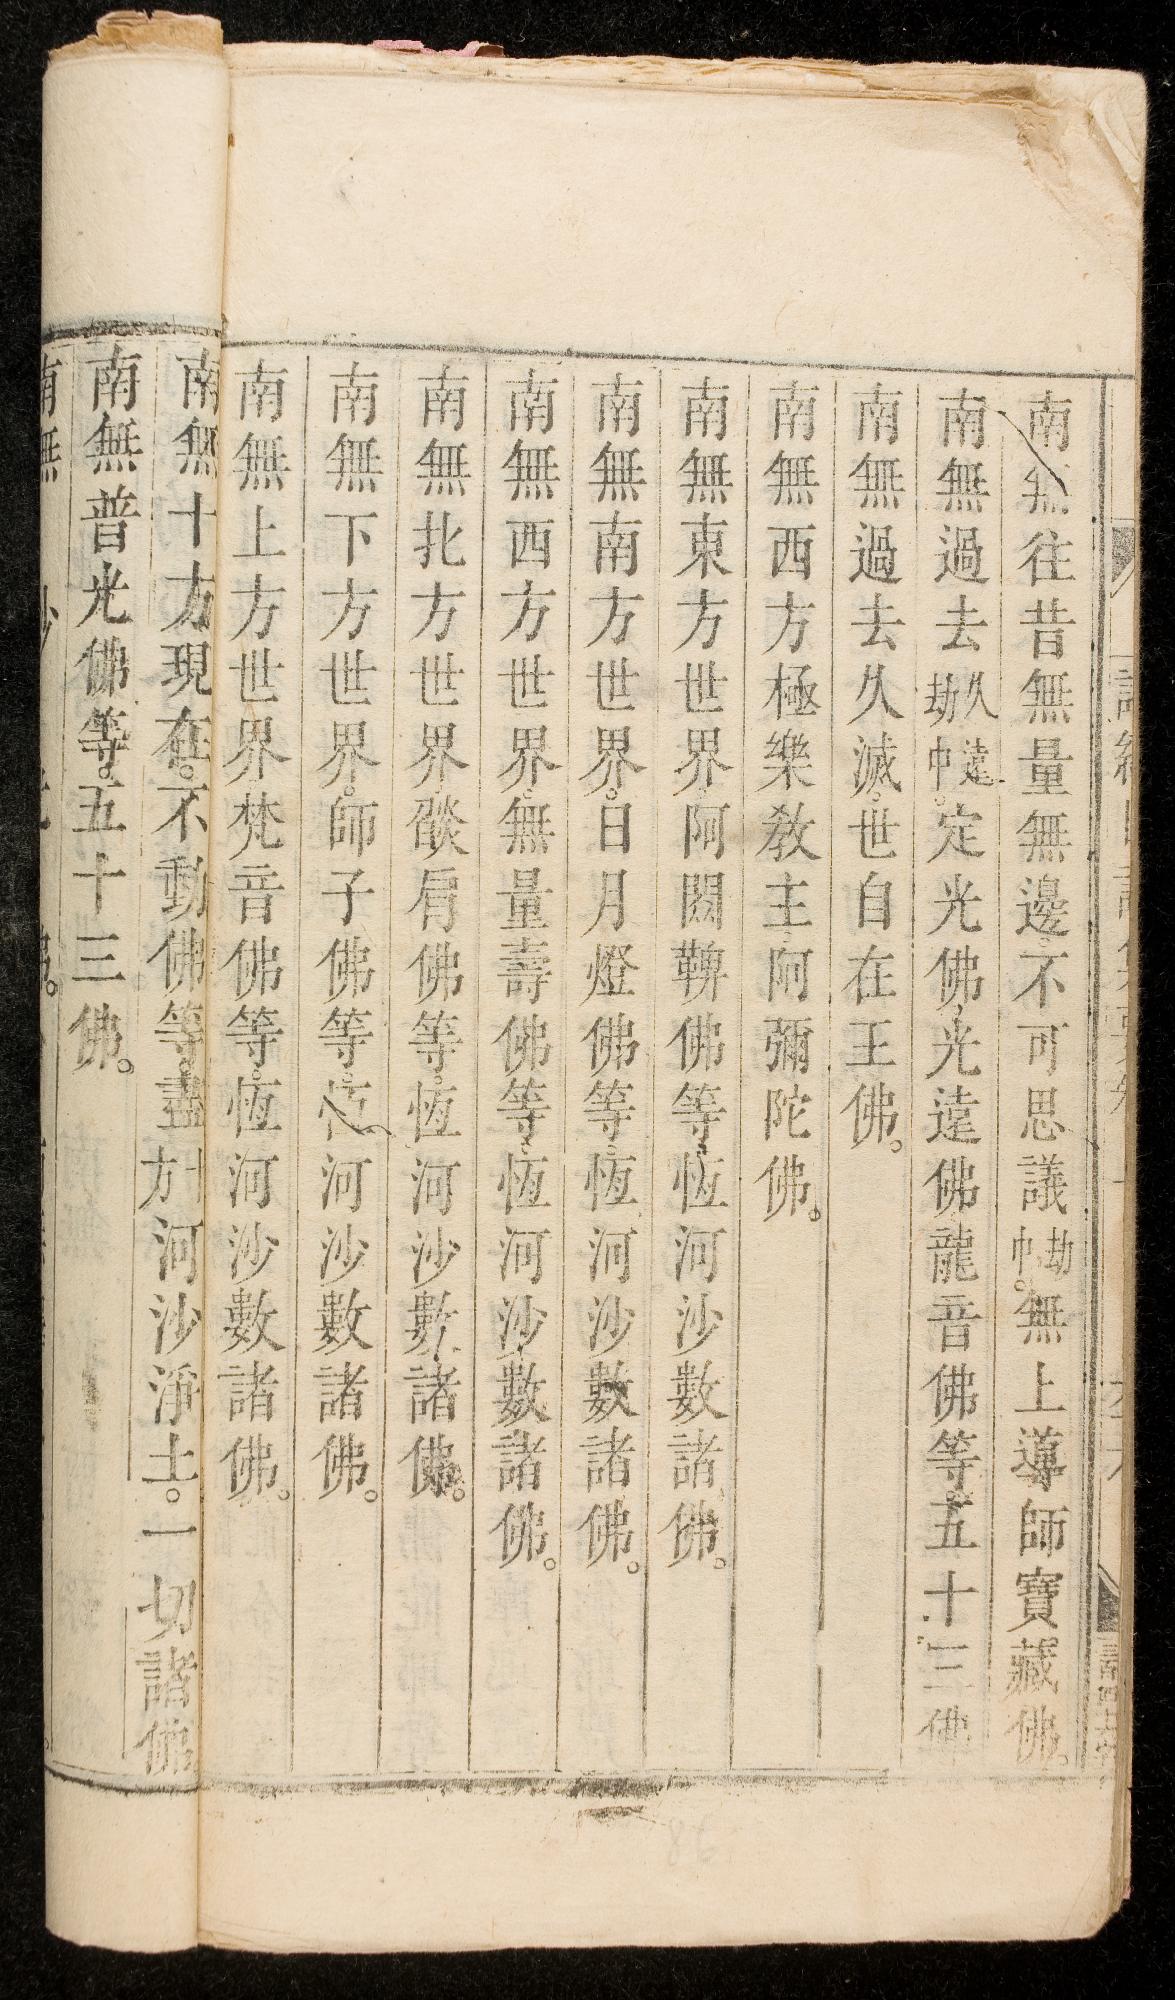 南無往昔無量無邊。不可思議劫中。無上導師寶藏佛。
南無過去久遠劫中。定光佛。光遠佛龍音佛等。五十三佛
南無過去久滅。世自在王佛。
南無西方極樂教主。阿彌陀佛。
南無東方世界。阿閦鞞佛等。恆河沙數諸佛。
南無南方世界。日月燈佛等。恆河沙數諸佛。
南無西方世界。無量壽佛等。恆河沙數諸佛。
南無北方世界。燄肩佛等。恆河沙數諸佛。
南無下方世界。師子佛等。恆河沙數諸佛。
南無上方世界梵音佛等。恆河沙數諸佛。
南無十方現在。不動佛等。盡河沙淨土。一切諸佛
南無普光佛等。五十三佛。
南無